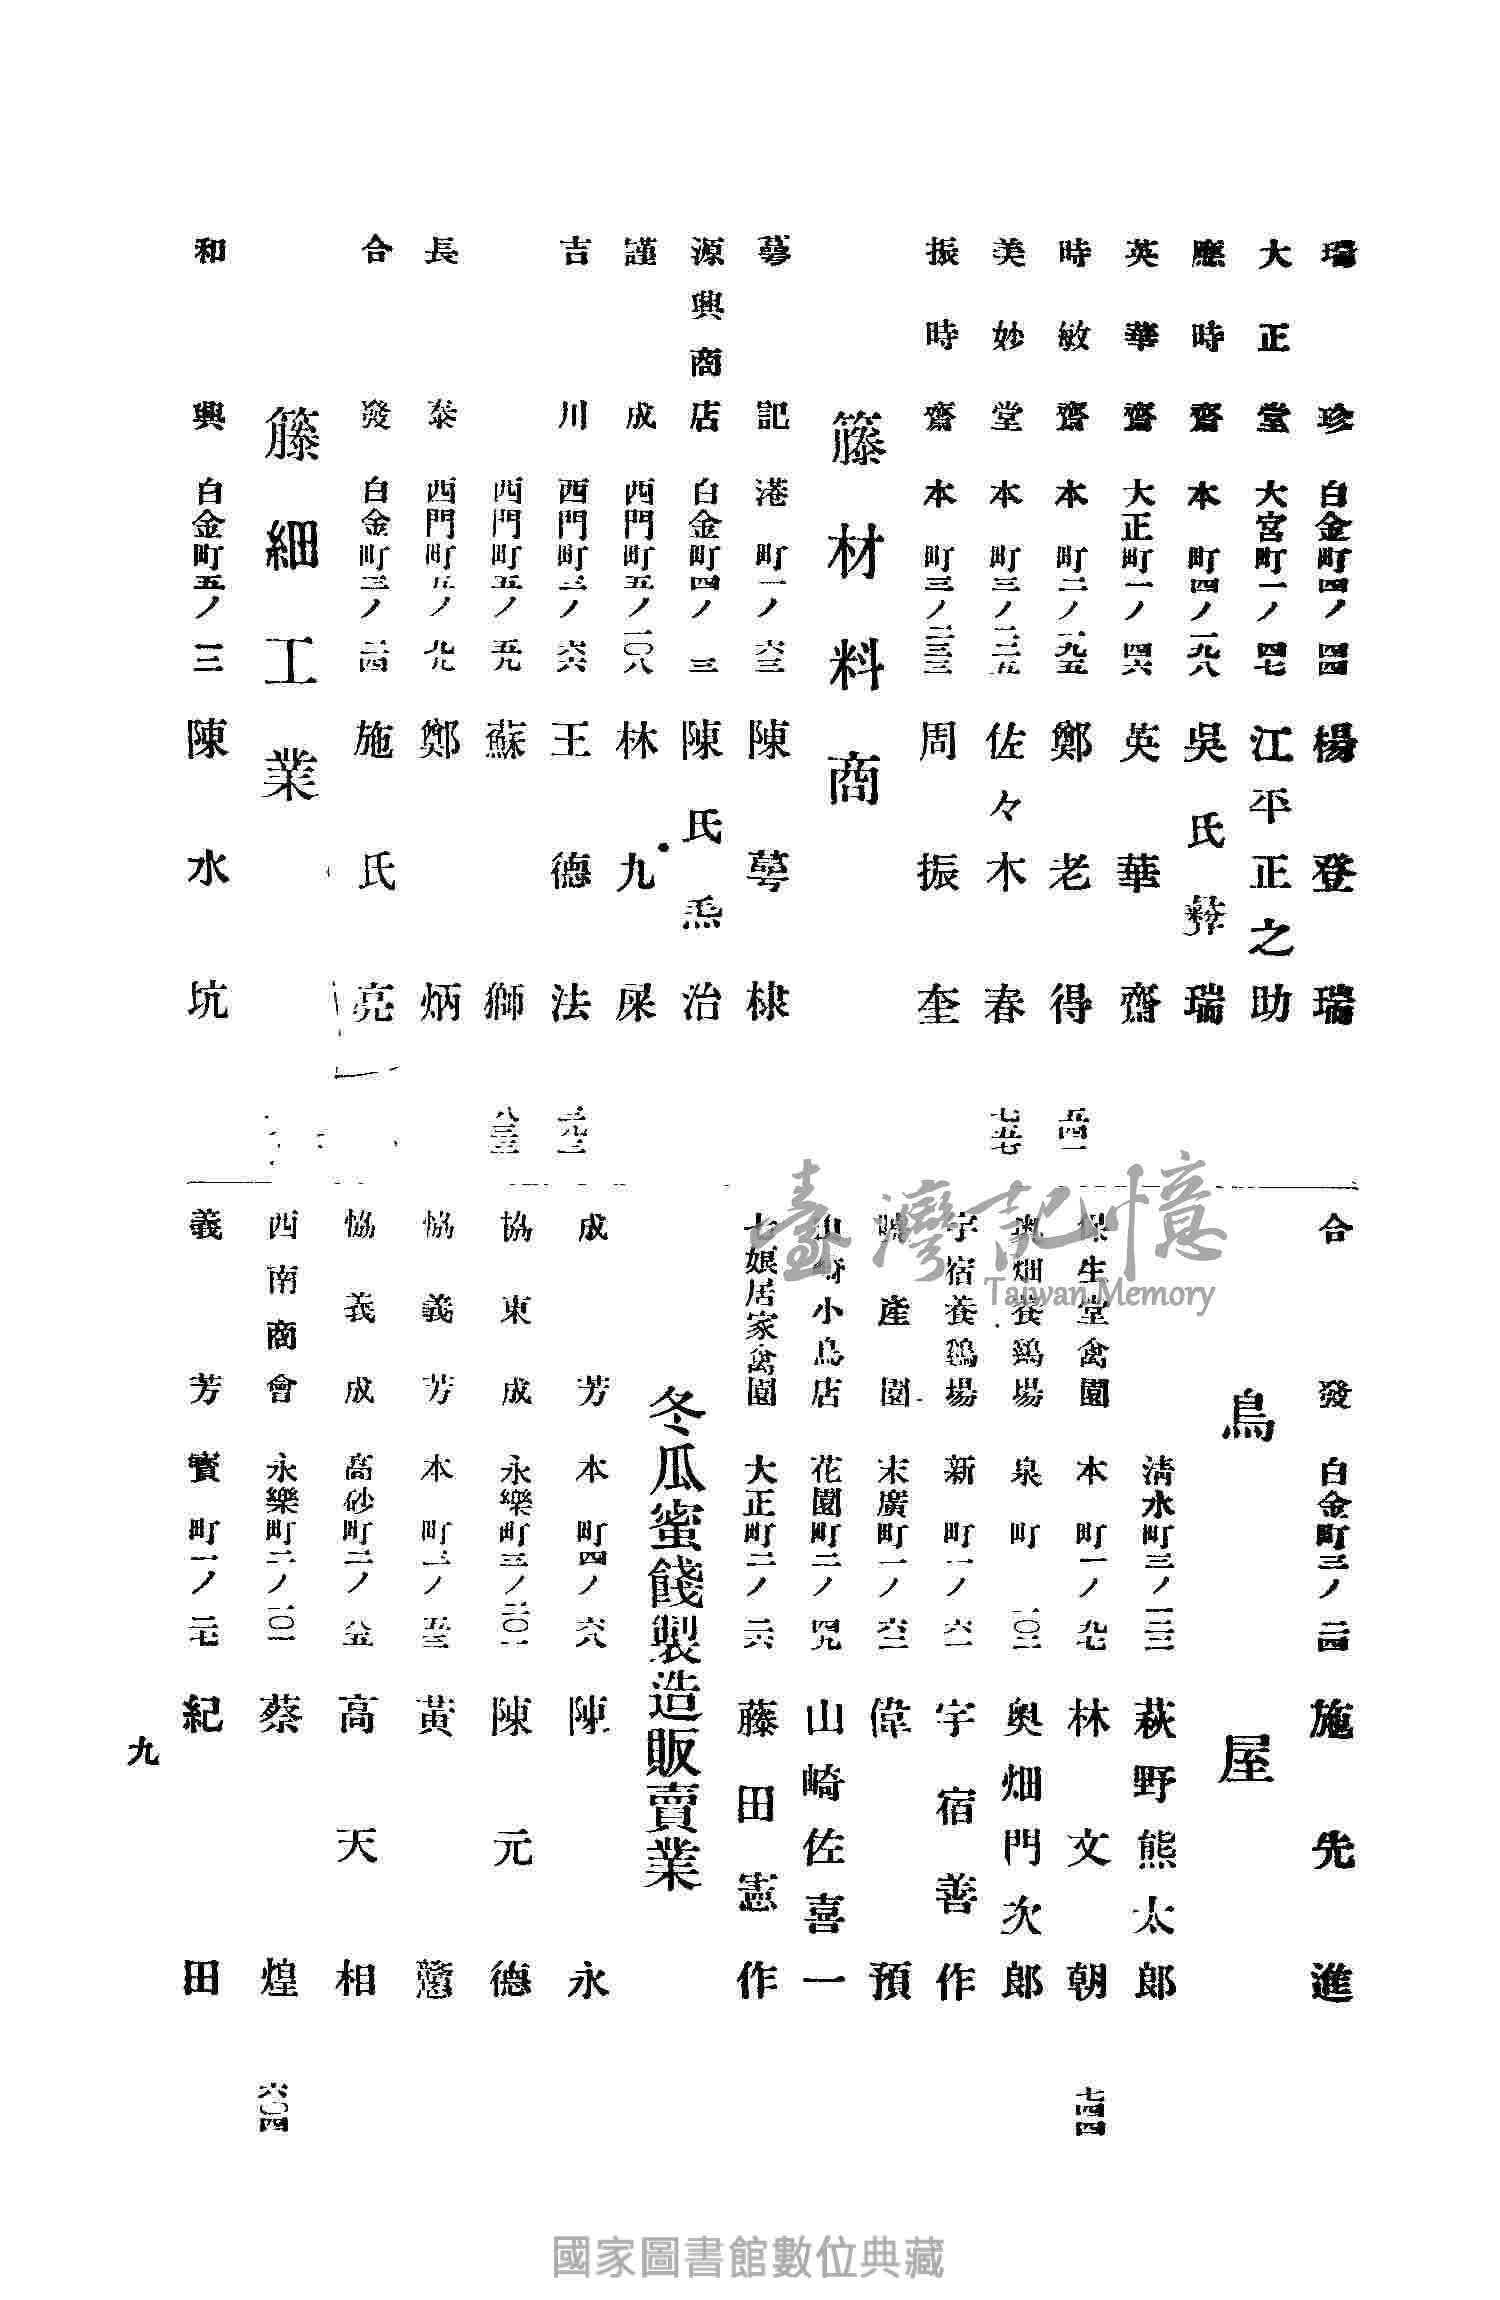 瑞珍 白金町四ノ四四 楊登瑞
大正堂 大宮町一ノ四七 江平正之助
應時齋 本町四ノ一九八 吳氏彝瑞
英華齋 大正町一ノ四六 英華齋
時敏齋 本町二ノ一九五 鄭老得 五四一
美妙堂 本町三ノ二二五 佐々木春 七五七
振時齋 本町三ノ二三三 周振奎
籐材料商
萼記 港町一ノ六三 陳萼棣
源興商店 白金町四ノ三 陳氏𤆬治
謹成 西門町五ノ一〇八 林九屎
吉川 西門町三ノ六六 王德法
西門町五ノ五九 蘇獅 八三三
長泰 西門町五ノ九九 鄭炳
合發 白金町三ノ二四 施氏亮
籐細工業
和興 白金町五ノ三 陳水坑
合發 白金町三ノ二四 施先進
鳥屋
清水町三ノ一二三 萩野熊太郎
保生堂禽園 本町一ノ九七 林文朝 七四四
奧畑養鷄場 泉町一〇二 奧畑門次郎
宇宿養鷄場 新町一ノ六一 宇宿善作
產園 末廣町一ノ六二 偉預
山崎小鳥店 花園町二ノ四九 山崎佐喜一
七娘居家禽園 大正町二ノ二六 藤田憲作
冬瓜蜜餞製造販賣業
成芳 本町四ノ六八 陳永
協東成 永樂町三ノ二〇一 陳元德
協義芳 本町 黃
協義成 高砂町二ノ八五 高天相
西南商會 永樂町二ノ一〇一 蔡煌 六〇四
義芳 寶町一ノ二七 紀田
九
臺灣記憶
Taiwan Memory
國家圖書館數位典藏